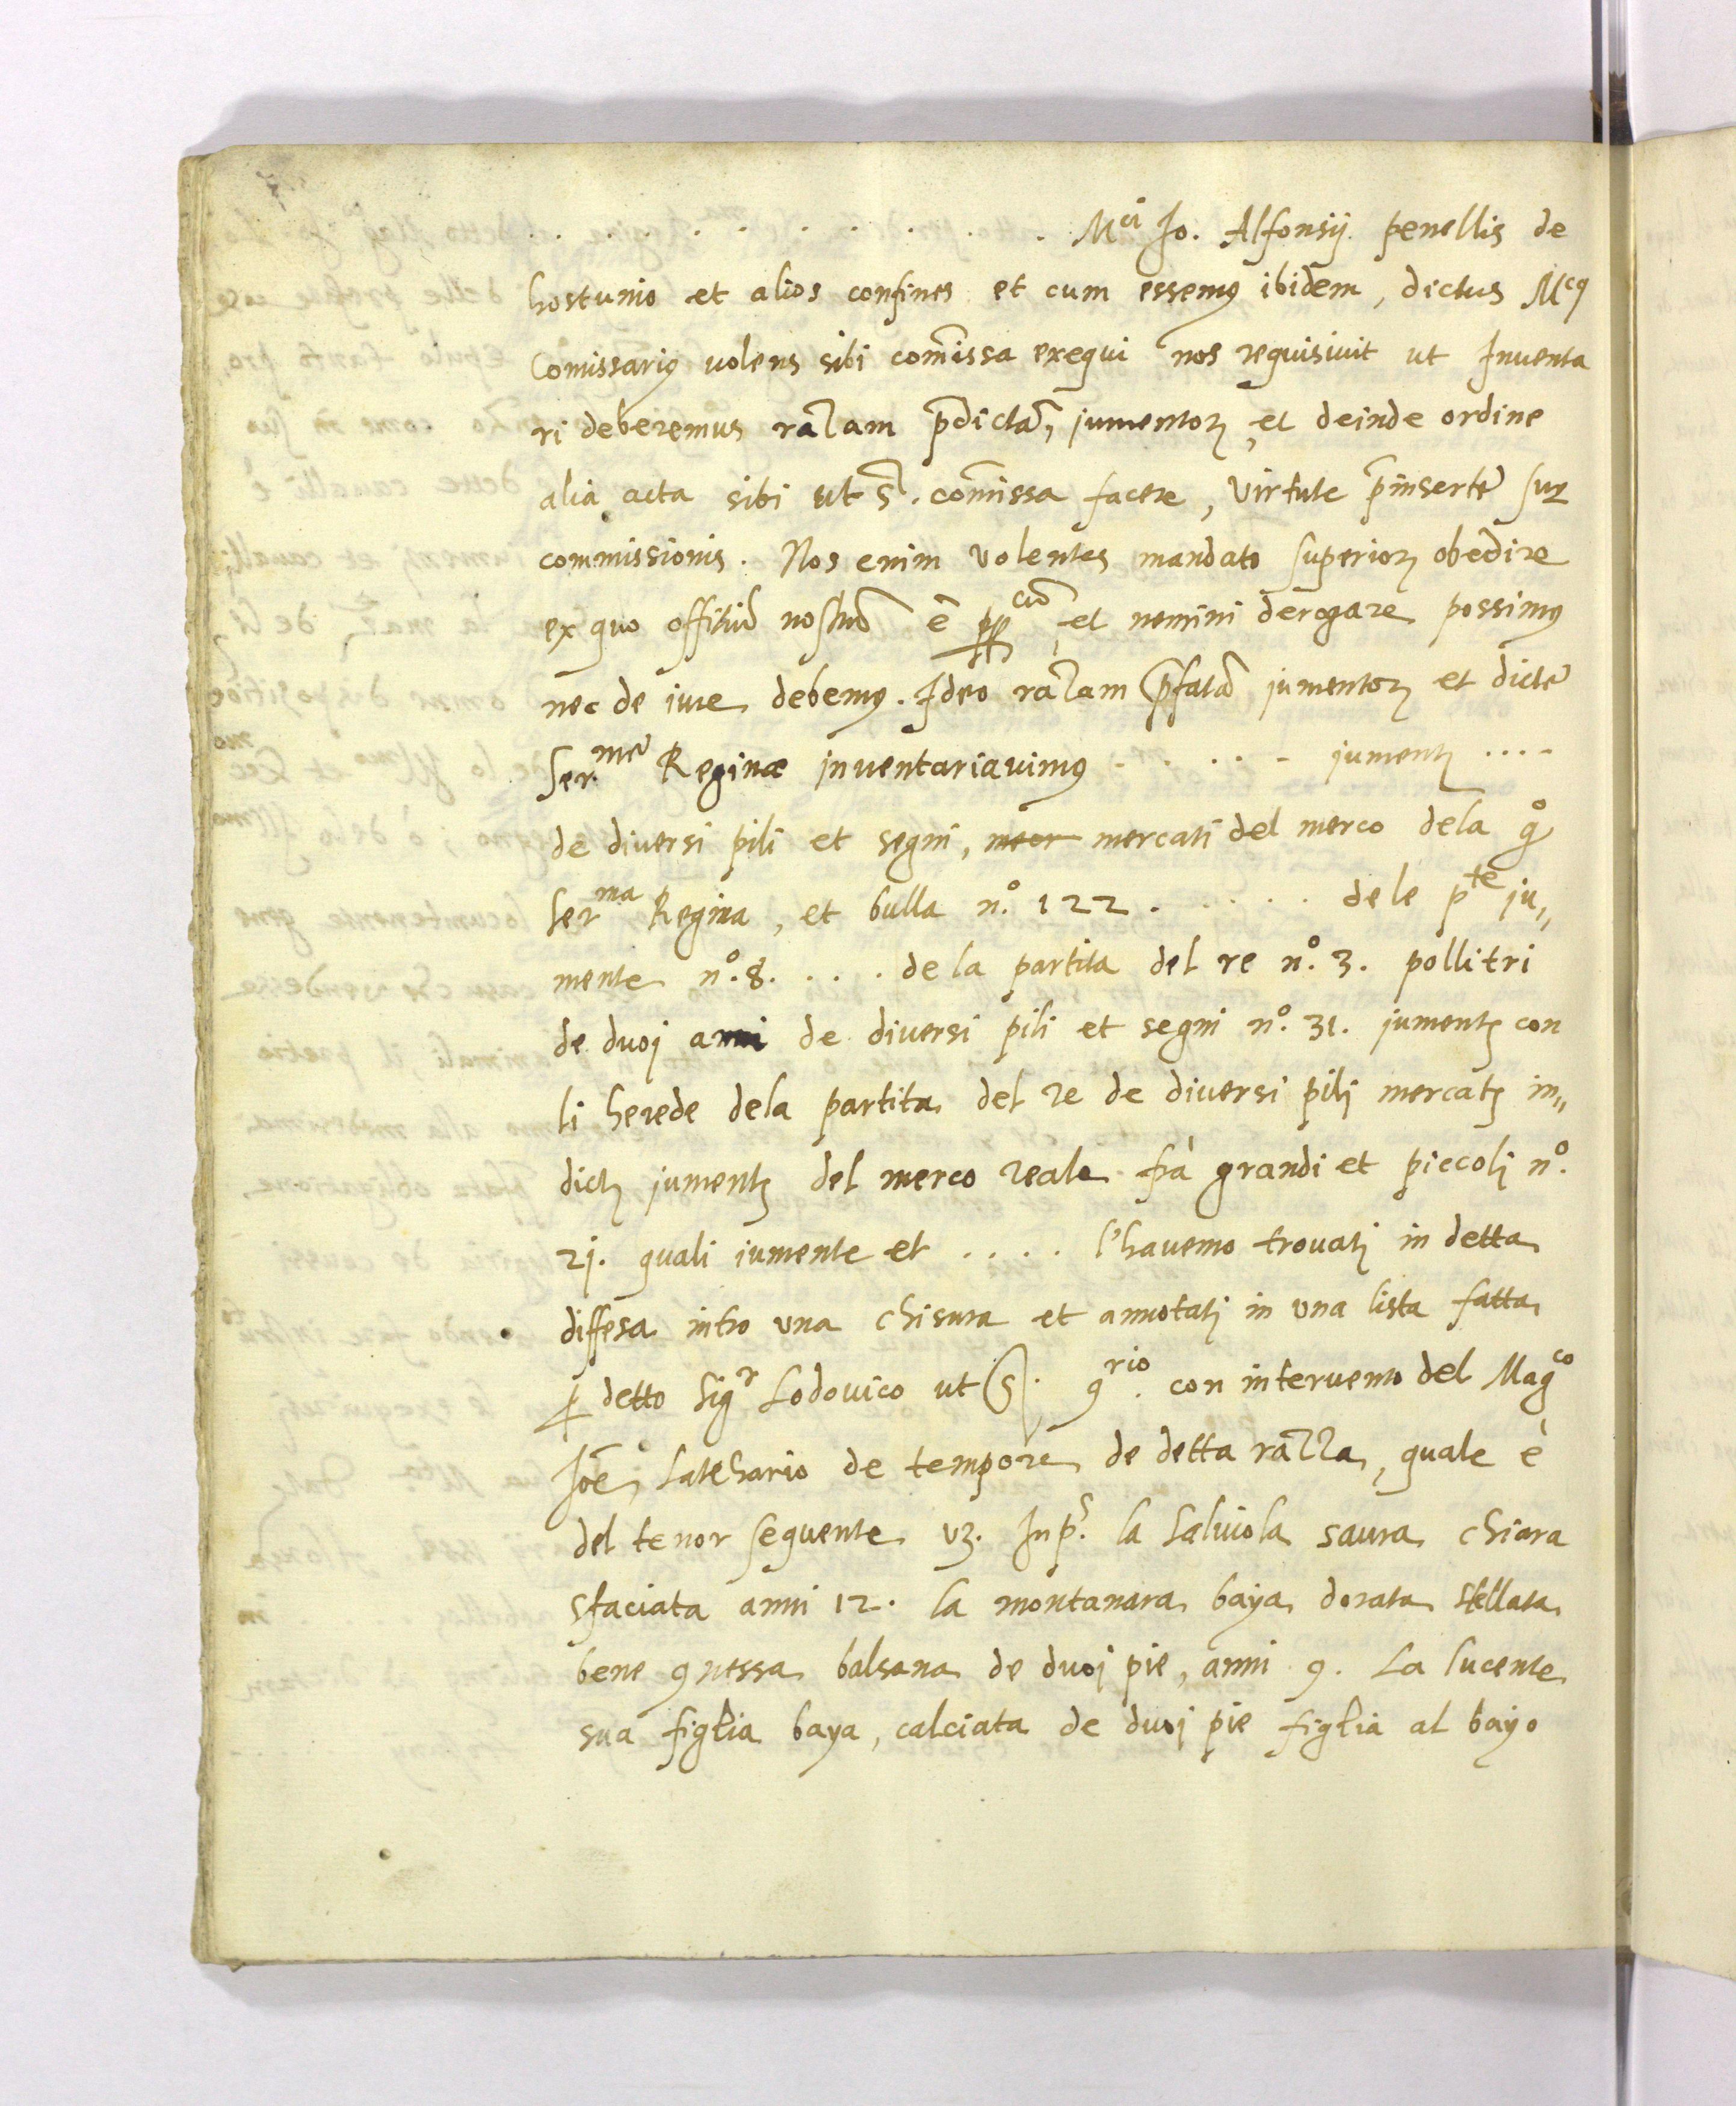 . . . . . . . . . . . Mci Jo. Alfonsij penellis de
hostunio et alios confines et cum essemꝰ ibidem, dictus Mcꝰ
Comissariꝰ volens sibi com̃issa exequi nos requisiuit ut Inuenta
ri deberemus raʒam p̃dictã, jumentoꝝ, et deinde ordine
alia acta sibi ut s.ª com̃issa facere, virtute p̃insertę suę
commissionis. Nos enim volentes mandato superioꝝ obedire
ex quo offitiũ nostrũ ẽ ppcũ, et nemini dergare possimꝰ
nec de iure debemꝰ. Ideo raʒam p̃fatã jumentoꝝ et dictę
Ser.mę Reginæ inuentariauimꝰ . . . . . jumentj . . . .
de diversi pili et segni, mecr mercati del merco dela qº
Serma Regina, et bulla n.º 122. . . . . . de le pte ju„
mente n.º 8. . . . de la partita del re n.º 3. pollitri
de duoj anni de diversi pili et segni n.º 31. jumentj con
li herede dela partita del re de diversi pilj mercatj in„
dictj jumentj del merco reale frà grandi et piccolj n.º
2j. quali iumente et . . . . l'havemo trovatj in detta
diffesa intro una chisura et annotatj in una lista fatta
ꝑ detto Sigr Lodovico ut s. ꝯrio. con intervento del Magco
Joẽ Latehario de tempore de detta raʒʒa, quale è
del tenor seguente vʒ. Inp.s la Salviola saura chiara
sfaciata anni 12. la montanara baya dorata stellata
bene ꝯnessa balsana de duoj pie, anni 9. La lucente
sua figlia baya, calciata de duoj pie figlia al bayo